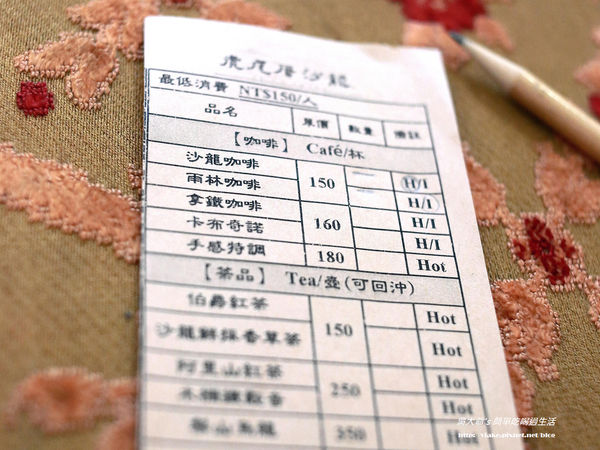 虎尾厝沙龍
最低消費 NT$150/人
品名 單價 數量 備註
【咖啡】 Café/杯
沙龍咖啡 150 H/I
雨林咖啡 H/I
拿鐵咖啡 160 H/I
卡布奇諾 H/I
手感特調 180 Hot
【茶品】 Tea/壺(可回沖)
伯爵紅茶 150 Hot
沙龍鮮採香草茶 Hot
阿里山紅茶 250 Hot
Hot
350 Hot